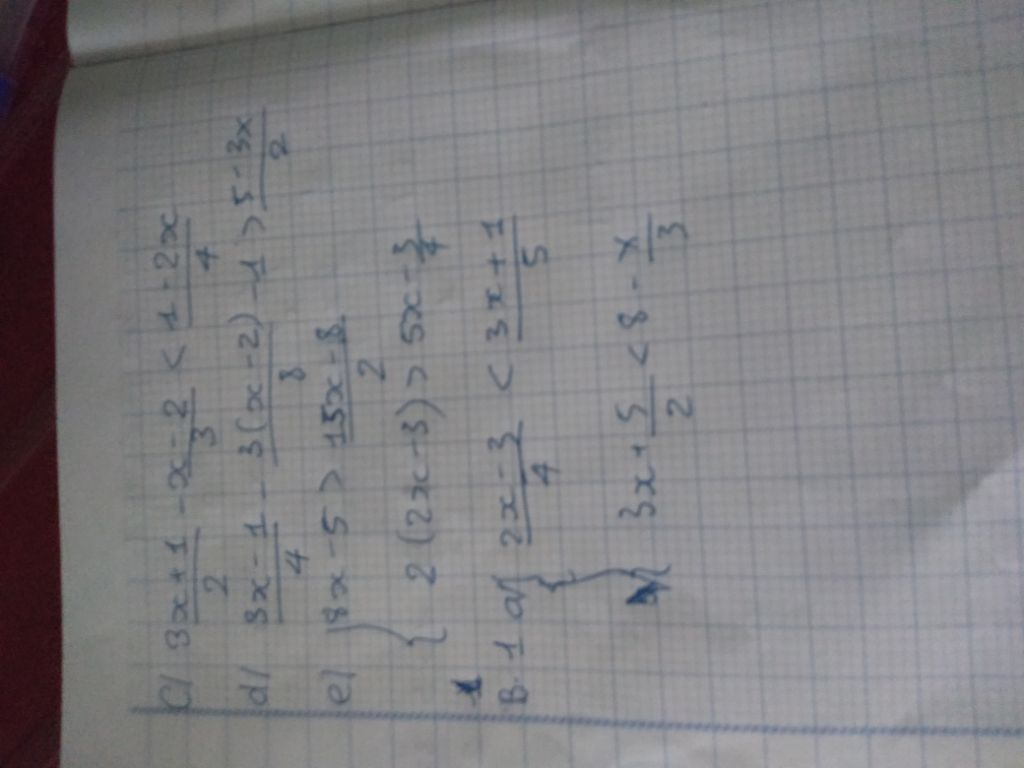 c/ (3x+1)/2 - (x-2)/3 < (1-2x)/4
d/ (3x-1)/4 - 3(x-2)/8 - 1 > (5-3x)/2
e/ { 8x-5 > (15x-8)/2
2(2x-3) > 5x - 3/4
B.1 a/ { (2x-3)/4 < (3x+1)/5
3x + 5/2 < 8 - x/3